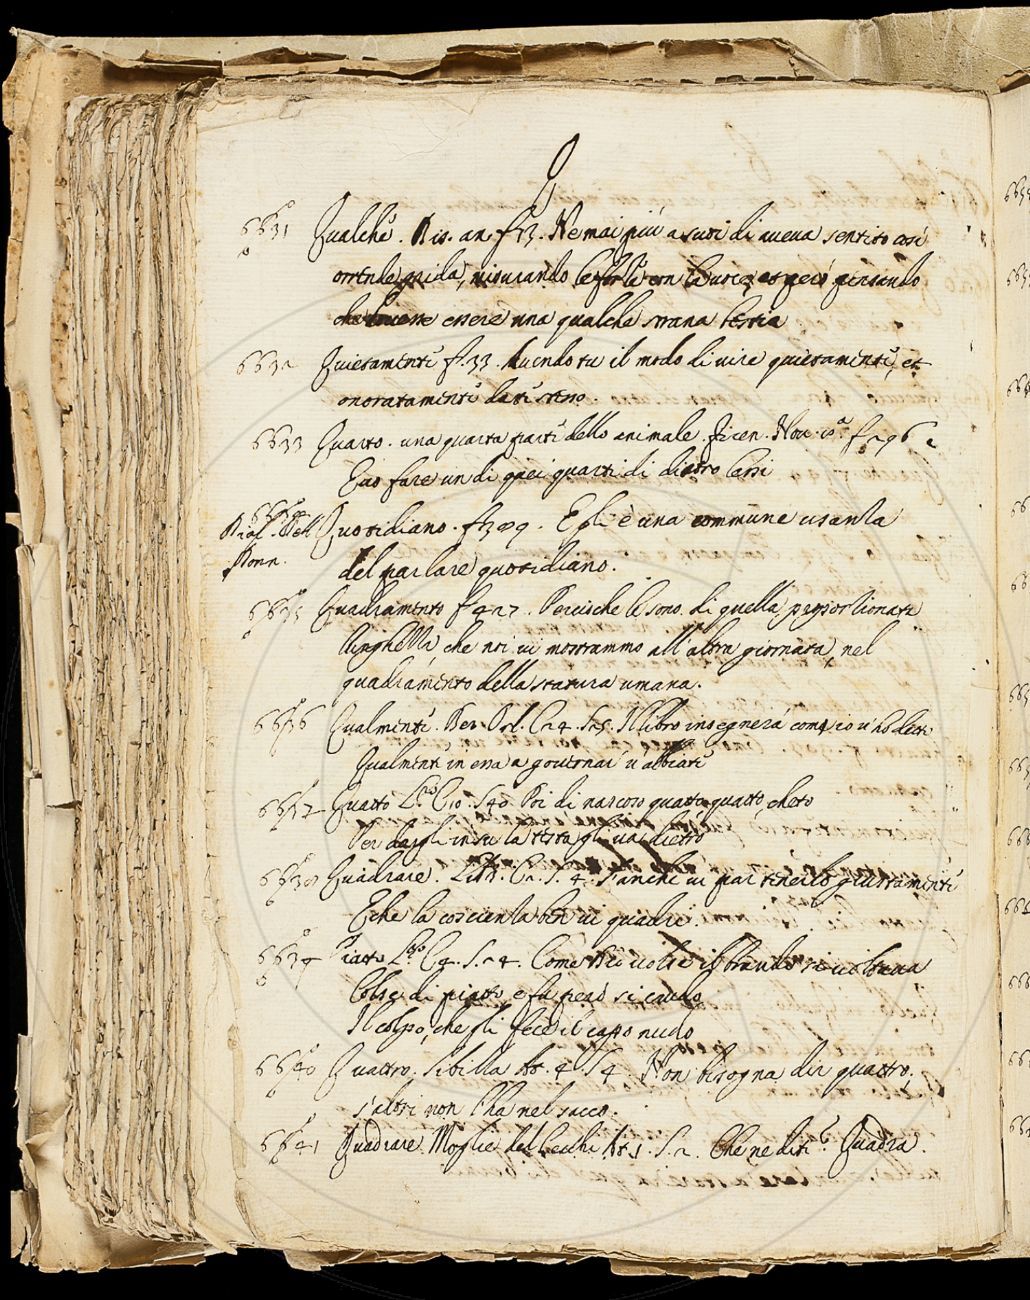 Q
6631 Qualche. Ris. an. f. 13. Ne mai più a suoi dì aveva sentito così
orrende grida, misurando le con la voce et però pensando
che essere una qualche strana bestia
6632 Quietamente f. 33. Avendo tu il modo di vivre quietamente, et
onoratamente
6633 Quarto. una quarta parte dello animale. Firen. Nov. f. 296
Può fare un di quei quarti di dietro
6634 Quotidiano. f. 309. Egli è una commune usanza
del parlare quotidiano.
6635 Quadramento f. 427. Percioche le sono di quella proportionata
che noi vi mostrammo all'altra giornata, nel
quadramento della statura umana.
6636 Qualmente. Ber. Orl. C. 24. S. 25. Il libro insegnerà com'io v'ho detto
Qualmente in era a governar v'abbiate
6637 Quatto L.º C. 10. S. 40. Poi di nascoso quatto quatto, cheto
Per dargli in su la testa gli va dietro
6638 Quadrare. C. 2. S. 4. S'anche vi par tenerlo giustamente
E che la coscienza ben vi quadri.
6639 Piatto L.º C. 4. S. 24. Come Dio volse il brando si voltava
Colse di piatto, e fu però sì crudo
Il colpo, che gli fece il capo nudo
6640 Quattro. Sibilla At. 4 S. 4. Non bisogna dir quattro,
s'altri non l'ha nel sacco.
6641 Quadrare. Moglie del Cecchi At. 1. S. 2. Che ne dite? Quadra.